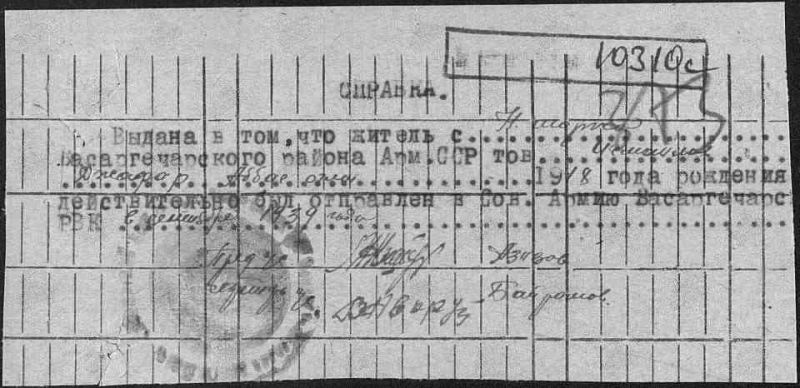 10310с
СПРАВКА.
Выдана в том, что житель с.
Басаргечарского района Арм.ССР тов. Исмаилов
Джафар Аббас оглы 1918 года рождения
действительно был отправлен в Сов. Армию Басаргечарс
РВК в сентябре 1939 года
Азизов
Байрамов